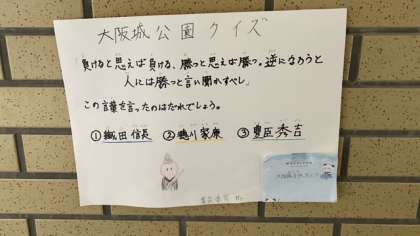 大阪城公園クイズ
「負けると思えば負ける、勝つと思えば勝つ。逆になろうと
人には勝つと言い聞かすべし」
この言葉を言ったのはだれでしょう。
①織田信長 ②徳川家康 ③豊臣秀吉